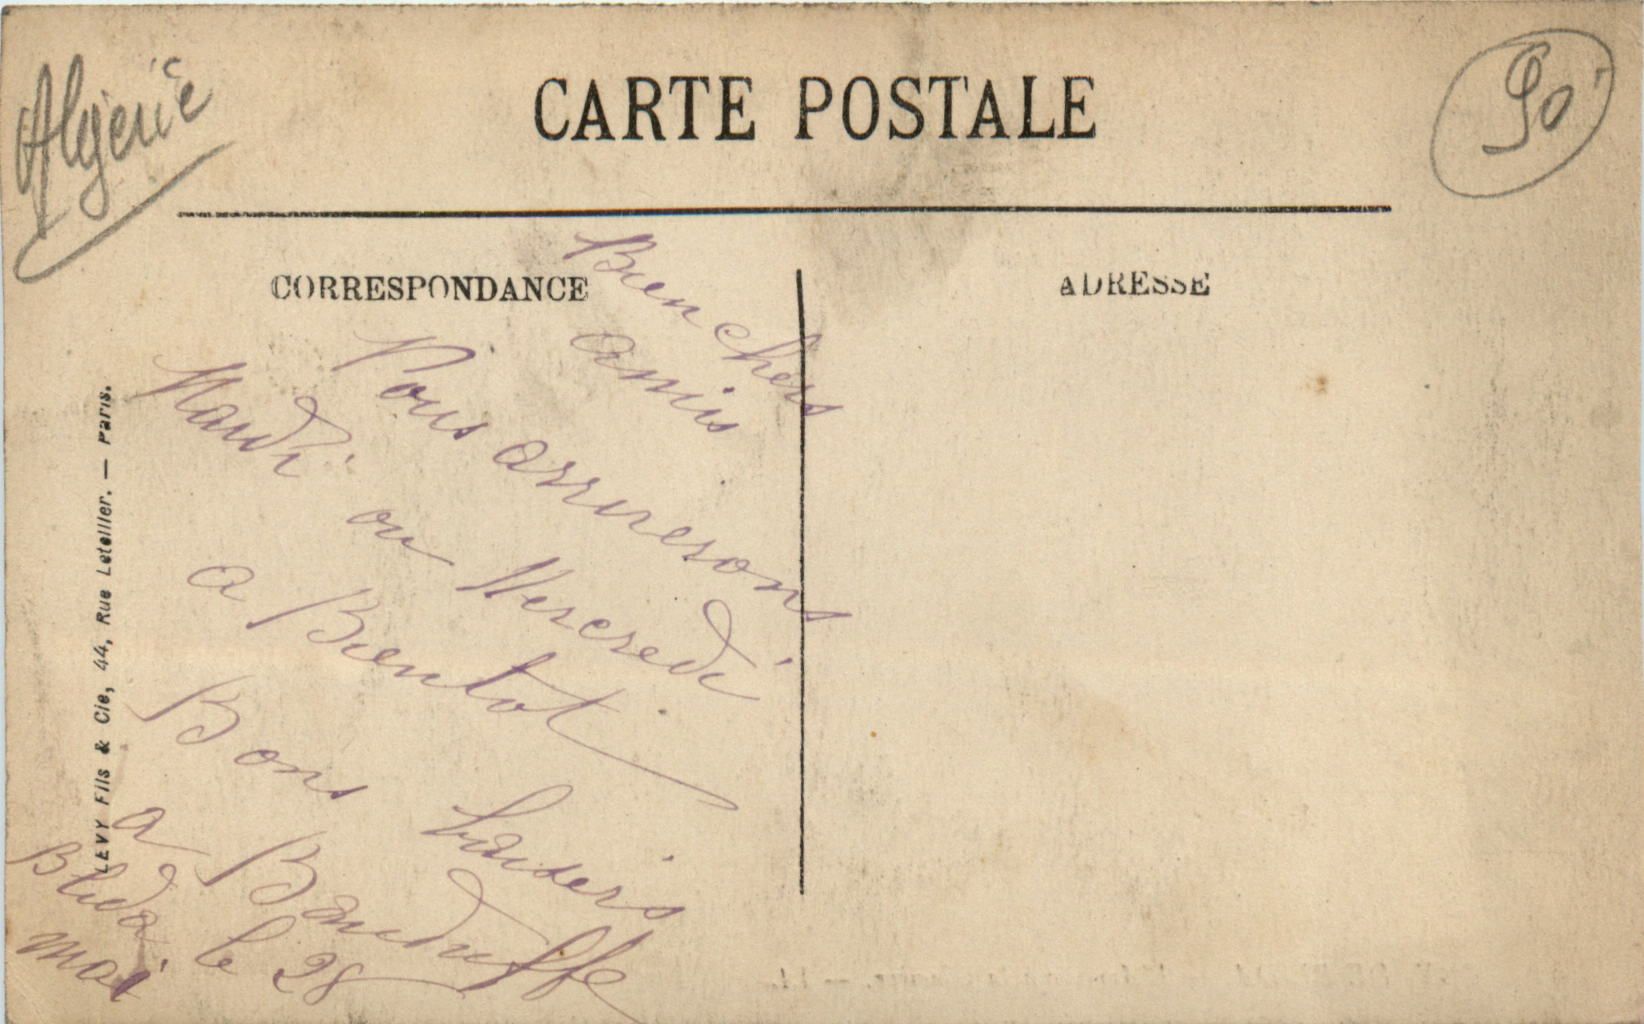 Algérie
CARTE POSTALE
90
CORRESPONDANCE
ADRESSE
Bien chers
amis
Nous arriverons
Mardi ou Mercredi
a Bientot
Bons baisers
a Bauduffe
Blida le 28
mai
LEVY Fils & Cie, 44, Rue Letellier. — Paris.